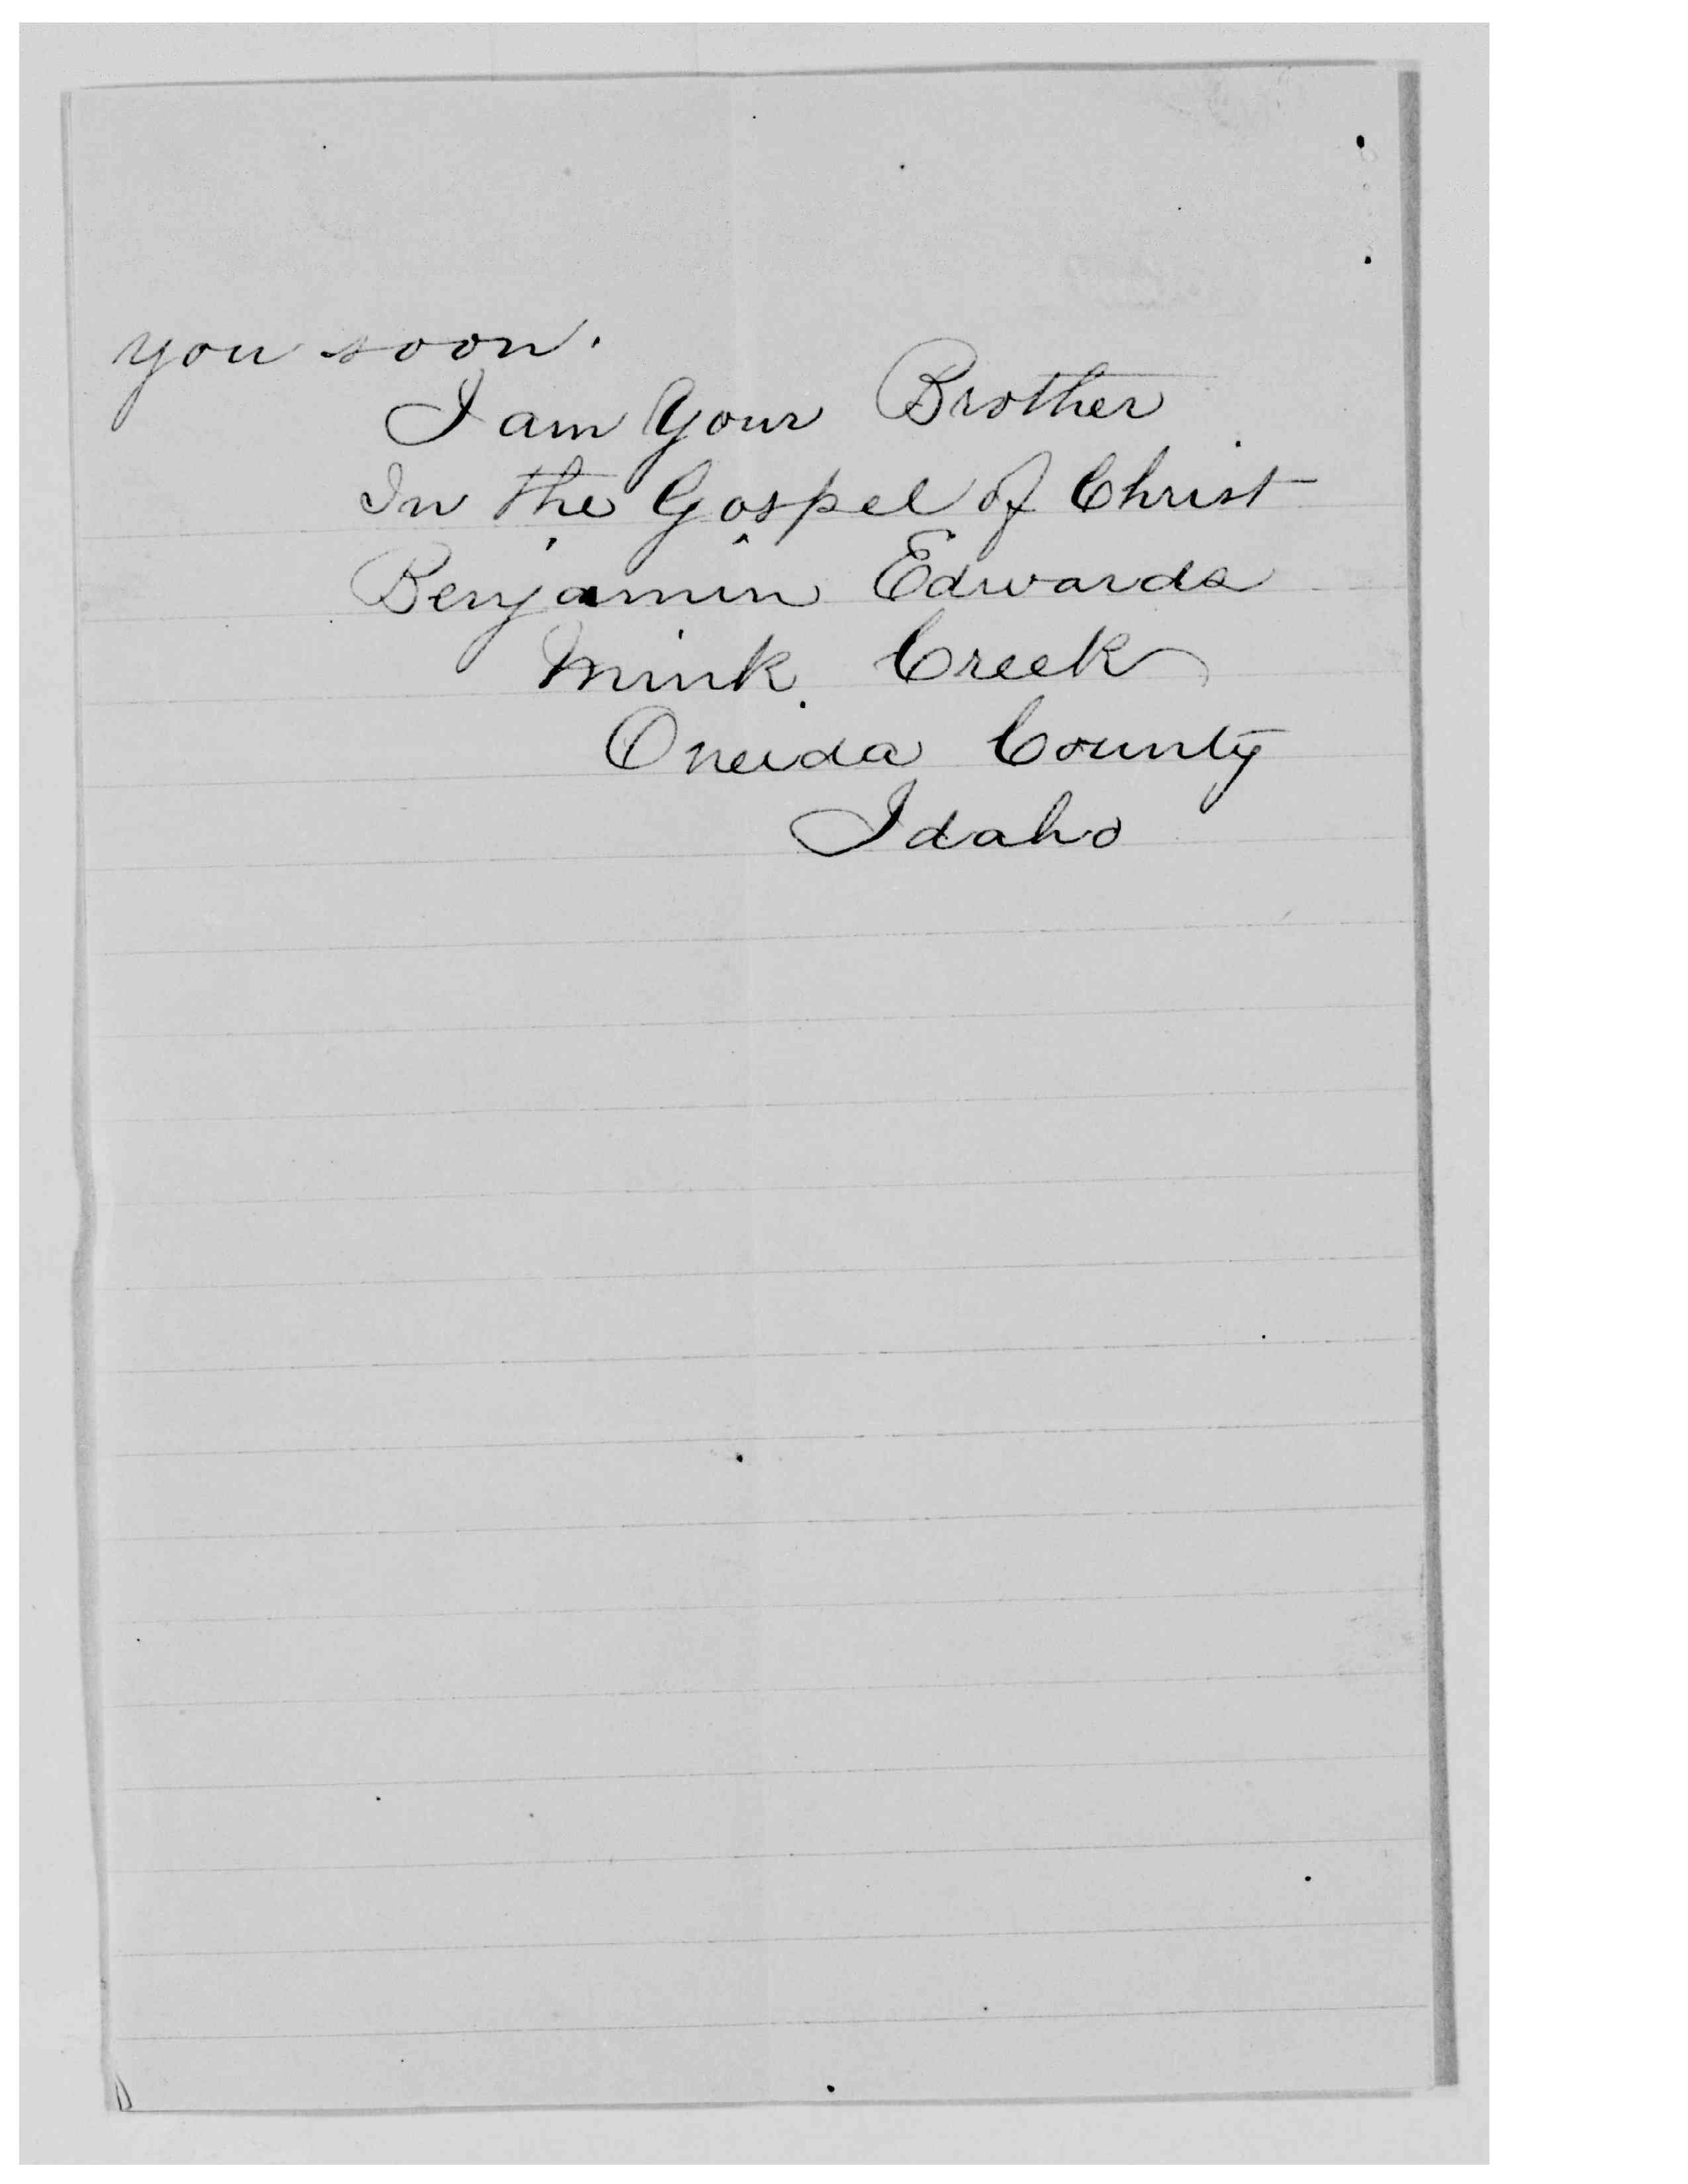 you soon.
I am Your Brother
In the Gospel of Christ
Benjamin Edwards
Mink Creek
Oneida County
Idaho